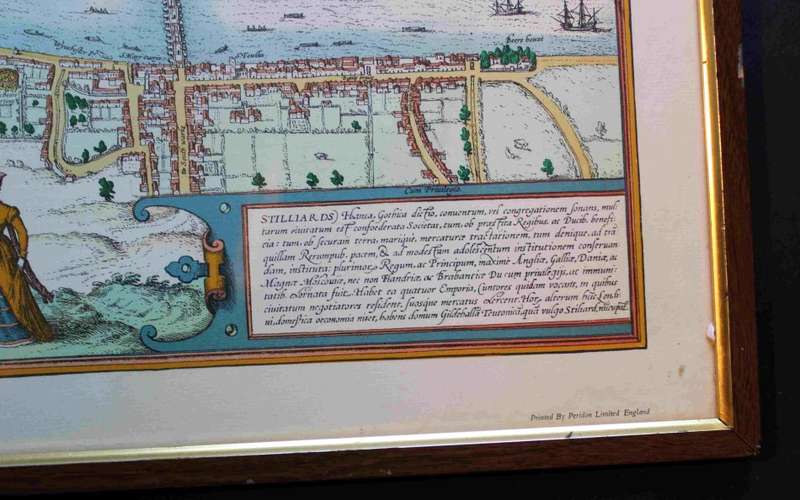 Beere howse
Cum Privilegio
STILLIARDS) Hansa, Gothica dictio, conuentum, vel congregationem sonans, mul-
tarum ciuitatum est confoederata Societas, tum ob præstita Regibus ac Ducib. benefi-
cia: tum ob securam terra, marique, mercaturæ tractationem, tum denique, ad trā
quillam Rerumpub. pacem, & ad modestam adolescentum institutionem conseruan
dam, instituta: plurimor. Regum, ac Principum, maxime Angliæ, Galliæ, Daniæ, ac
Magnæ Moscouiæ, nec non Flandriæ, ac Brabantiæ Du cum priuilegijs, ac immuni-
tatib. exornata fuit. Habet ea quatuor Emporia, Cuntores quidam vocant, in quibus
ciuitatum negotiatores resident, suosque mercatus exercent. Hor. alterum hic Londi-
ni, domestica oeconomia nitet, habens domum Gildehallā Teutonicā, quā vulgo Stiliard, nūcupāt.
Printed By Peridon Limited England